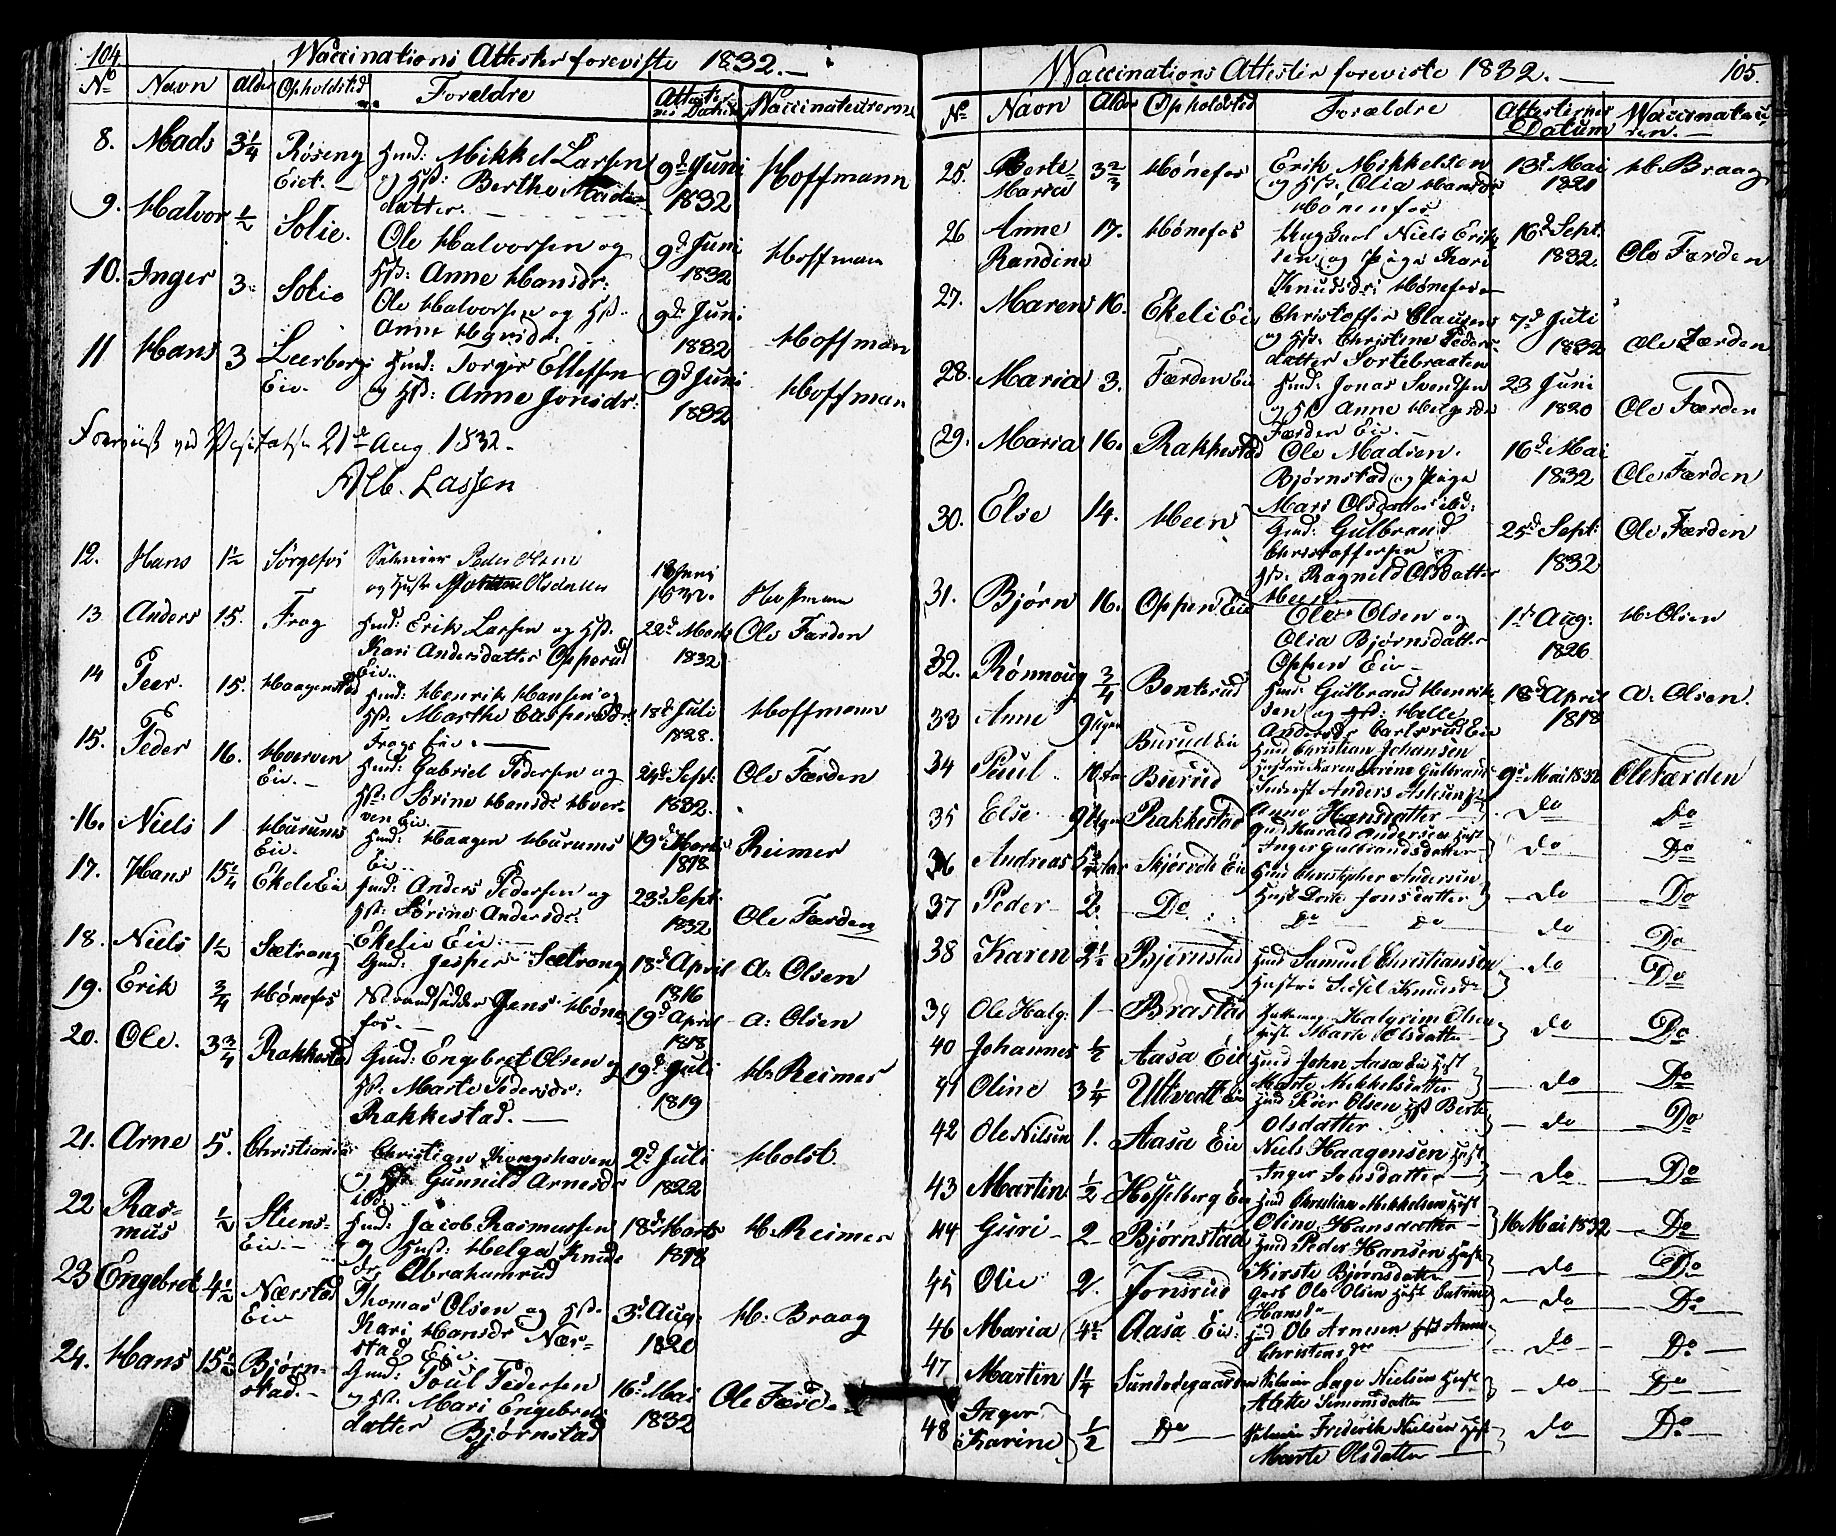 104.
Waccinations Attester foreviste 1832.
No Navn Alder Opholdsted Forældre Attester- nes Datum Vaccinateurerne
8. Mads 3 1/4 Røseng Eiet. Gmd: Mikkel Larsen og Hst: Berthe Mads- datter. 9d Juni 1832 Hoffmann
9. Halvor 1/2 Solie. Ole Halvorsen og Hst: Anne Hansdr: 9d Juni 1832 Hoffman
10. Inger 3 Solie Ole Halvorsen og Hst. Anne 9d Juni 1832 Hoffman
11 Hans 3 Leerbergs Eie. Hmd: Torger Ellefsen og Hst: Anne Jonsdr: 9d Juni 1832 Hoffman
Foreviist ved Visitatsen 21de Aug 1832.
Alb. Lassen
12. Hans 1 1/2 Sørgefos Peder Olsen og Hust Olsdatter Juni 1832. Hoffmann
13 Anders 15. Frog Hmd: Erik Larsen og Hst. Kari Andersdatter Opperud Eie. 22d Marts 1832 Ole Færden
14 Peer. 15. Haagenstad Hmd: Henrik Hansen og Hst. Marthe Caspersdr: Frogs Eie. 18d Juli 1828. Hoffmann
15. Peder 16. Hverven Eie. Hmd: Gabriel Pedersen og Hst: Sørine Hansdr Hver- ven Eie. 24d Sept: 1832. Ole Færden
16. Niels 1 Hurums Eie. Hmd: Haagen Hurums Eie. 19d Marts 1818 Reimer
17. Hans 15 1/4 Ekeli Eie Hmd: Anders Pedersen og Hst: Sørine Andersdr: Ekelie Eie 23d Sept: 1832 Ole Færden
18. Niels 1 1/2 Sætrang Gmd: Jesper Sætrang 18d April 1816 A: Olsen
19. Erik 3/4 Hønefos Jens Høne- fos. 19d April 1818 A: Olsen
20. Ole. 3 3/4 Rakkestad Gmd: Engebret Olsen og Hst. Marte Pedersdr: Rakkestad. 19d Juli 1819 H: Reimer
21. Arne 5. Christiania Christian Kongshaven og Hst Gunnild Arnesdr ibd: 2d Juli 1822 Holst.
22 Ras- mus 1/2 Steens- Eie. Hmd: Jacob Rasmussen og Hust: Helga Knuds dr Abrahamrud 18d Marts 1818 H: Reimer
23 Engebret 4 1/2 Nærstad Eie Thomas Olsen og Hst. Kari Hansdr Nær- stad Eie. 3d Aug: 1820 H: Braag
24. Hans 15 1/2 Bjørn- stad. Gmd: Poul Pedersen og Hst. Mari Engebrets datter Bjørnstad 16d Mai 1832 Ole Færden
Waccinations Attester foreviste 1832. 105.
No Navn Alder Opholdsted Forældre Attesternes Datum Waccinateu- ren.
25. Berte Maria 3 2/3 Hønefos Erik Mikkelsen og Hst. Olia Hansdr Hønenfos 13d Mai 1821 H: Braag
26 Anne Randine 17. Hønefos Ungkarl Niels Erik- sen og Pige Kari Knudsdr: Hønefos 16d Sept: 1832. Ole Færden
27. Maren 16. Ekeli Eie Christoffer Clausen og Hst. Christine Peders- datter Sortebraaten 7d Juli 1832 Ole Færden
28. Maria 3. Færden Eie Hmd: Jonas Svendsen og Hst Anne Helgesdr Færden Eie. 23 Juni 1820 Ole Færden
29. Maria 16. Rakkestad Ole Madsen. Bjørnstad og Pige Mari Olsdatter ibd: 16d Mai 1832 Ole Færden
30. Else 14. Heen Gmd: Gulbrand Christoffersen og Hst. Ragnild Olsdatter Heen. 25d Sept: 1832 Ole Færden
31. Bjørn 16. Oppen Eie Ole Olsen og Olia Bjørnsdatter Oppen Eie 1st Aug: 1826 H: Olsen
32. Rønnoug 3/4 Benterud Hmd: Gulbrand Henrik- sen og Hst: Helle Andersdr Carlsrud Eie 18d April 1818 A: Olsen.
33 Anne 9 Uger Burud Eie Hmd Christian Johansen Hustru Karen Sørine Gulbrands
34 Paul 10 Burud Anders Hst Anne Hansdatter 9d Mai 1832 Ole Færden
35 Else 9 Uger Rakkestad Gmd Harald Andersen Hust Inger Gulbrandsdatter Do Do
36 Andreas Skjørvold Eie Hmd Christopher Andersen Hust Dorte Jonsdatter do Do
37 Peder 2 Do Do Do do Do
38 Karen 2 1/2 Bjørnstad Hmd Samuel Christiansen Hustru Sidsel Knudsdr do Do
39 Ole Halg: 1 Brastad Halgrim Olsen Hust Marte Olsdatter do Do
40 Johannes 1/2 Aasa Eie Hmd John Aasa Eie Hust Marte Mikkelsdatter do Do
41 Oline 3 1/4 Ultvedt Eie Hmd Peer Olsen Hst Berte Olsdatter do Do
42 Ole Nilsen 1. Aasa Eie Niels Haagensen Hust Inger Jonsdatter do Do
43 Martin 1/2 Hesselberg Eie Hmd Christian Mikkelsen Hust Oline Hansdatter 16 Mai 1832 Do
44 Guri 2 Bjørnstad Hmd Peder Hansen Hust Kirste Bjørnsdatter do Do
45 Olie 2. Jonsrud Ole Olsen Hust Catrine Hansdr do Do
46 Maria 4 1/2 Aasa Eie. Hmd Ole Arnesen Hst Anne Christensdr do Do
47 Martin 1 1/4 Sundregaarden Lage Nielsen Hust Alette Simonsdatter do Do
48 Inger Karine 1/2 Do Frederik Nielsen Hust Marte Olsdatter do Do